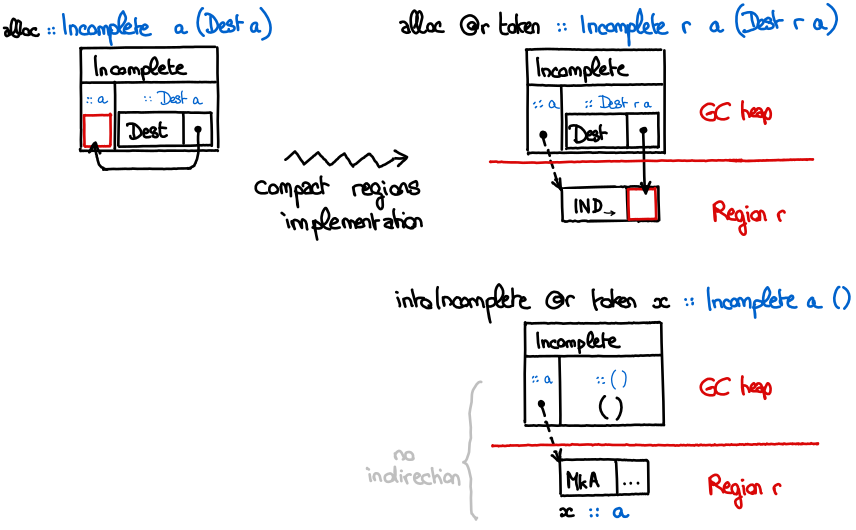 alloc :: Incomplete a (Dest a)
Incomplete
:: a :: Dest a
Dest
compact regions
implementation
alloc @r token :: Incomplete r a (Dest r a)
Incomplete
:: a :: Dest r a
Dest
GC heap
IND→
Region r
intoIncomplete @r token x :: Incomplete a ()
Incomplete
:: a :: ()
()
GC heap
no
indirection
MkA ...
Region r
x :: a